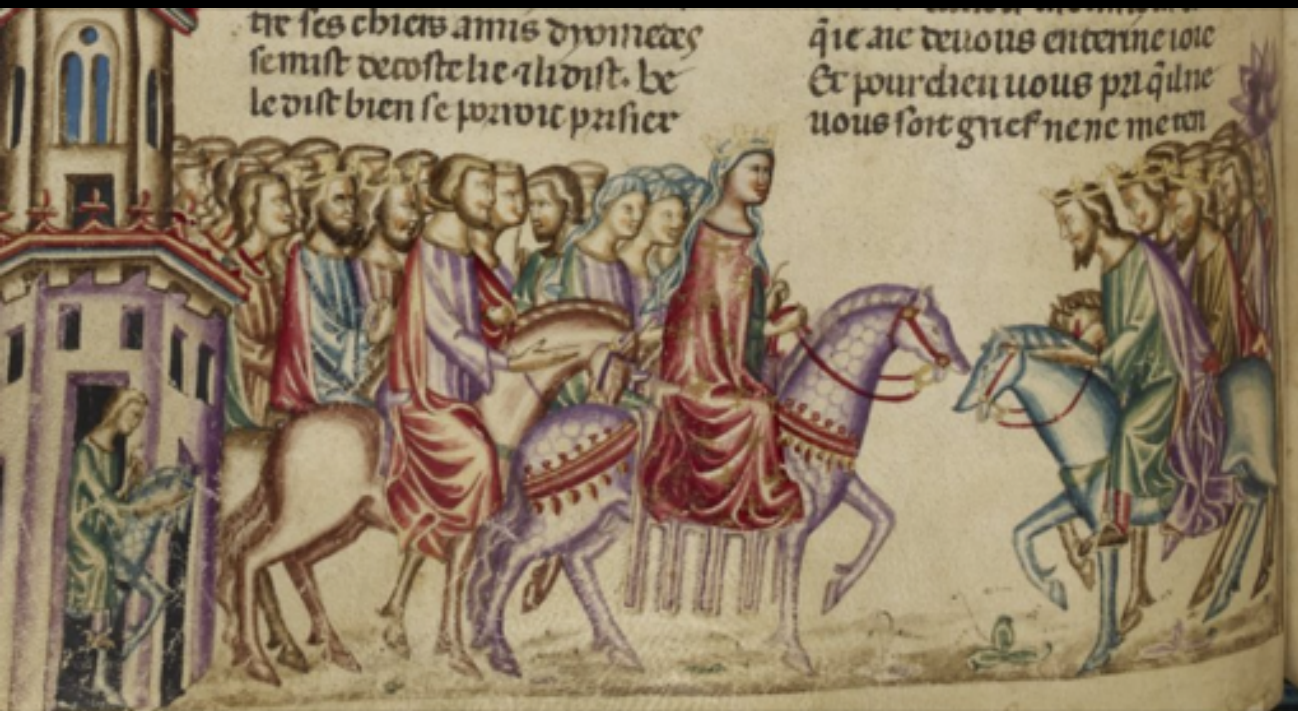 tir ses chiers amis dyomedes
se mist decoste lie ⁊ li dist. be
le dist bien se poroit prisier
q̃ ie aie deuous enterine ioie
Et pour dieu uous pri q̃ il ne
uous soit grief ne ne me ten